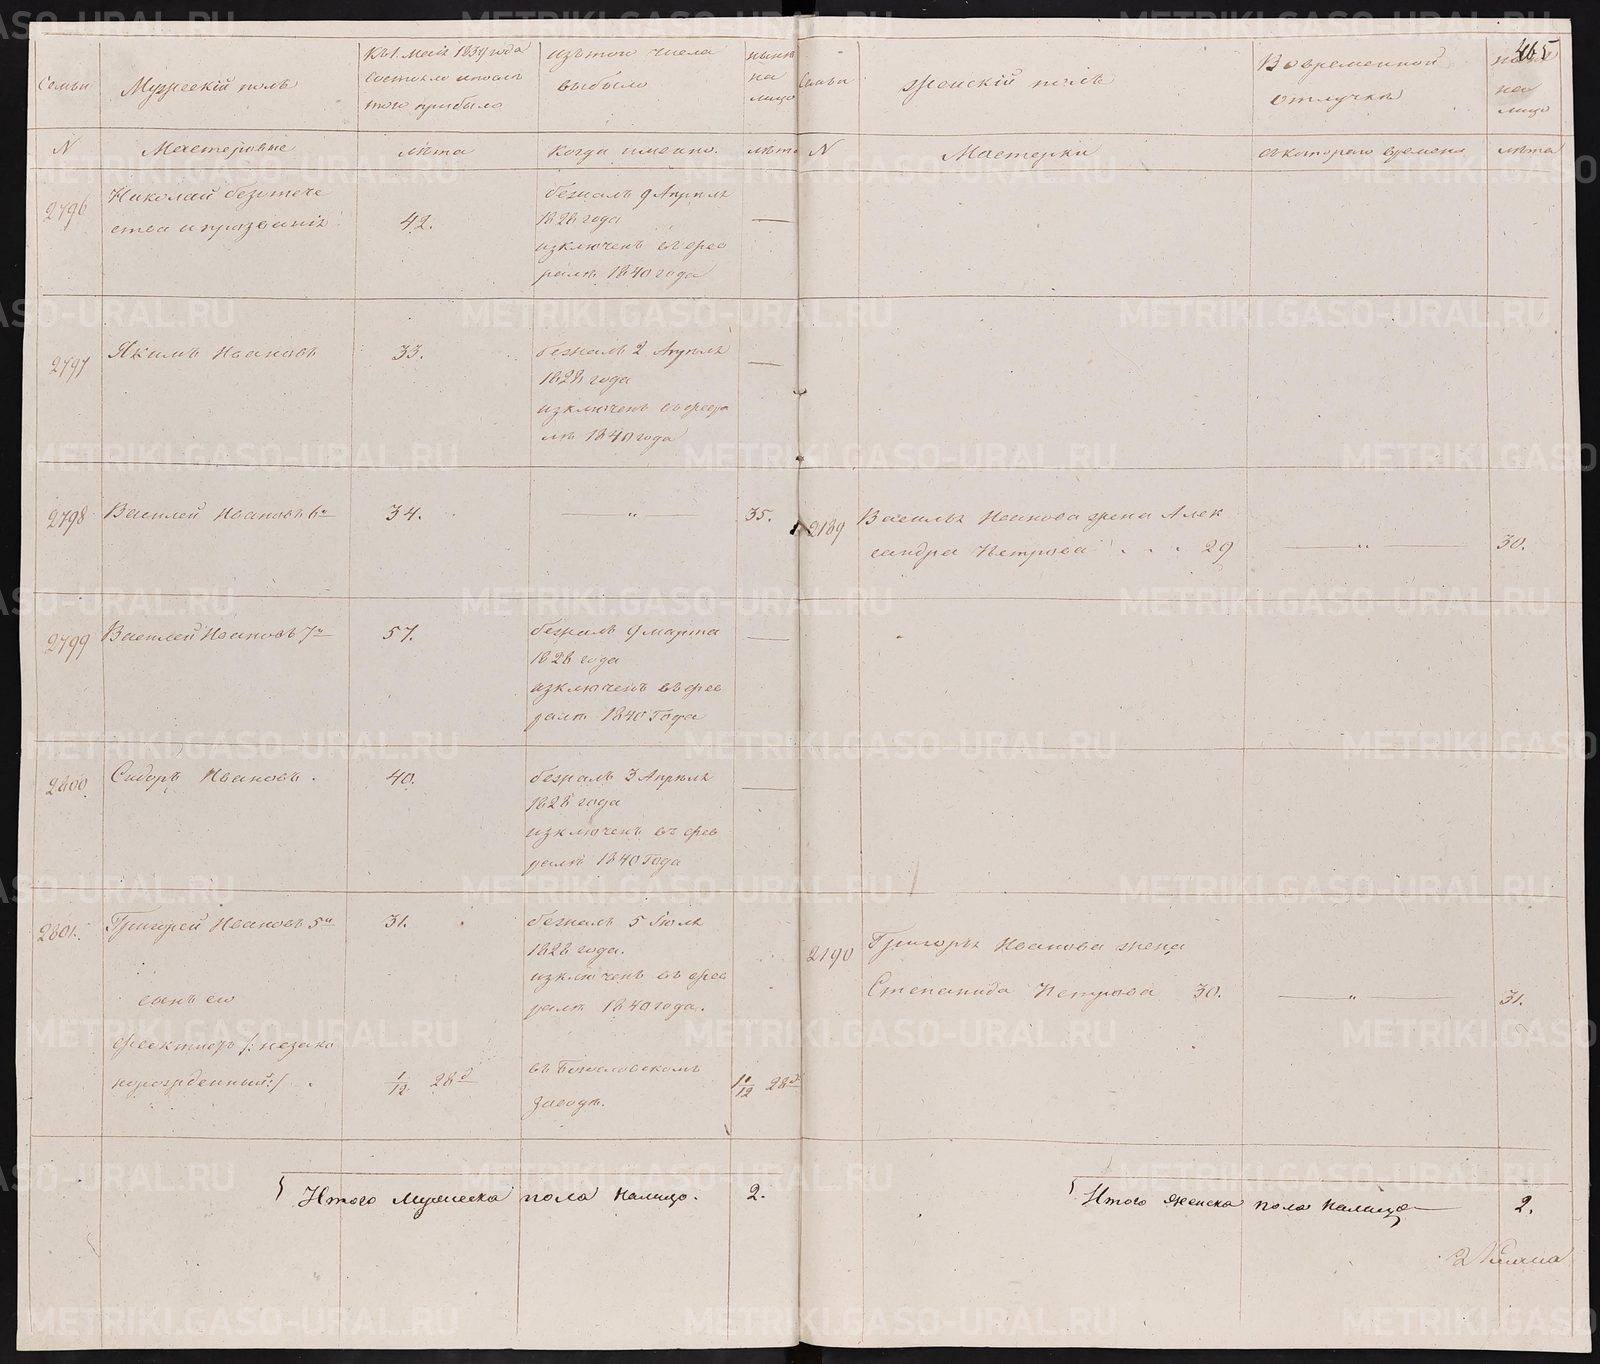 465
Семьи
Мужескій полъ
Къ 1 Маія 1834 года
состояло и послѣ
того прибыло
изъ того числа
выбыло
нынѣ
на
лицо
N
Мастеровые
лѣта
когда именно.
лѣта
2796
Николай безъ отече
ства и прозванія
42.
бежалъ 9 Апрѣля
1828 года
изключенъ въ фев
ралѣ 1840 года
2797
Якимъ Ивановъ
33.
бежалъ 2 Апрѣля
1828 года
изключенъ въ февра
лѣ 1840 года
2798
Василей Ивановъ 6й
34.
— „ —
35.
2799
Василей Ивановъ 7й
57.
бежалъ 9 марта
1828 года
изключенъ въ фев
ралѣ 1840 Года
2800
Сидоръ Ивановъ.
40.
бежалъ 3 Апрѣля
1828 года
изключенъ въ фев
ралѣ 1840 Года
2801.
Григорей Ивановъ 5й
31.
бежалъ 5 Іюля
1828 года.
изключенъ въ фев
ралѣ 1840 года.
сынъ его
незако
норожденный:/.
1/12 28д
въ Богословскомъ
заводѣ.
28д
Итого мужеска пола налицо. 2.
Семьи
женскій полъ
Во временной
отлучкѣ
на
лицо
N
Мастерки
съ котораго времени
лѣта
2189
Василья Иванова жена Алек
сандра Петрова . . . 29
— „ —
30.
2190
Григорья Иванова жена
Степанида Петрова 30.
— „ —
31.
Итого женска пола налицо — 2.
METRIKI.GASO-URAL.RU